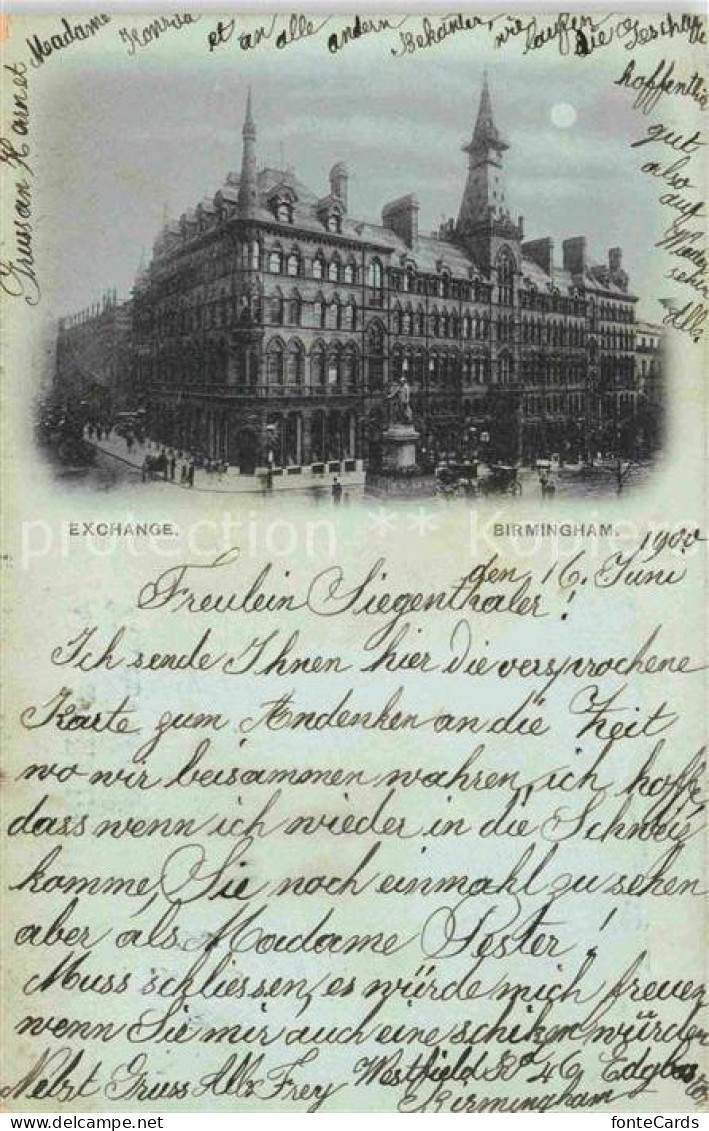 Gruss an Harnet
Madame Konrad et an alle andern Bekanter, wie laufen die Geschäfte
hoffentlich
gut
also
auf
Wieder
sehen
Alle
EXCHANGE. BIRMINGHAM.
den 16. Juni 1900
Freulein Siegenthaler!
Ich sende Ihnen hier die versprochene
Karte zum Andenken an die Zeit
wo wir beisammen wahren, ich hoffe,
dass wenn ich wieder in die Schweis
komme, Sie noch einmahl zu sehen
aber als Madame Pester!
Muss schliessen, es würde mich freuen
wenn Sie mir auch eine schiken würden
Nebst Gruss Alb Frey Westfield Rd 46 Edgbaston
Birmingham
protection ** Kopierschutz
fonteCards